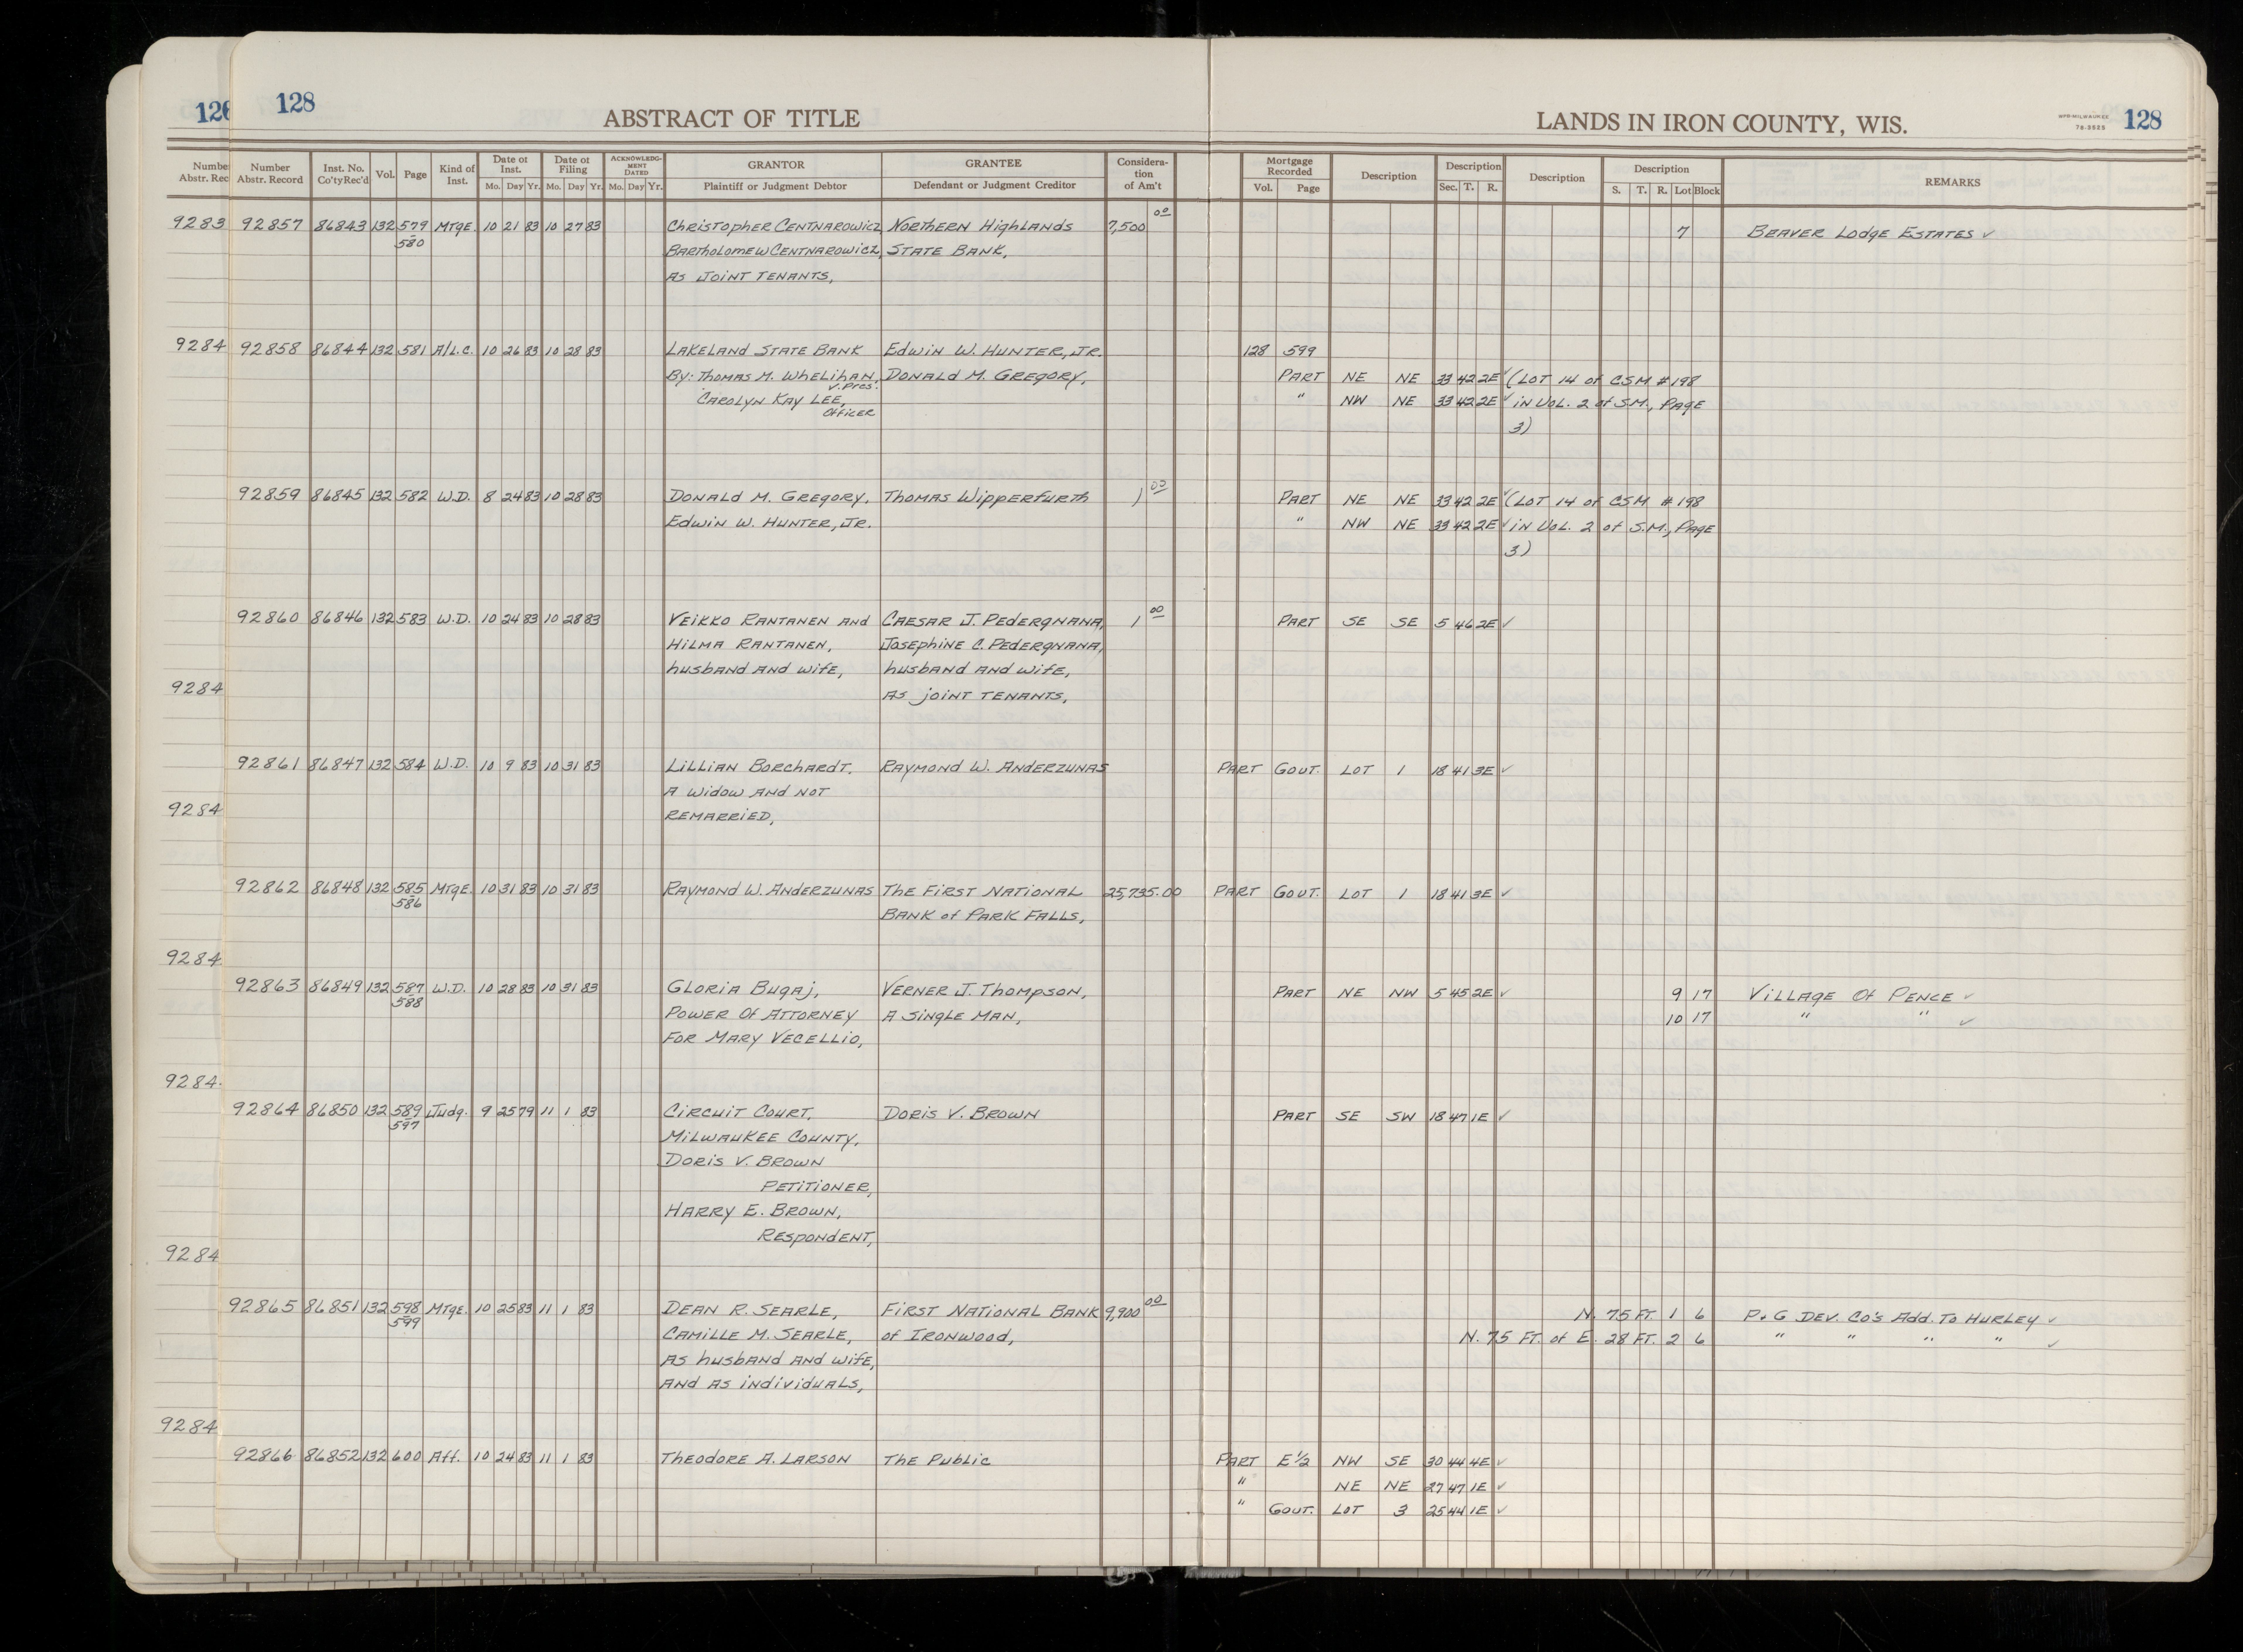 126 128 ABSTRACT OF TITLE LANDS IN IRON COUNTY, WIS. WPB-MILWAUKEE 78-3525 128
Number Abstr. Rec
Number Abstr. Record | Inst. No. Co'ty Rec'd | Vol. | Page | Kind of Inst. | Date of Inst. Mo. Day Yr. | Date of Filing Mo. Day Yr. | ACKNOWLEDGMENT DATED Mo. Day Yr. | GRANTOR Plaintiff or Judgment Debtor | GRANTEE Defendant or Judgment Creditor | Consideration of Am't | Mortgage Recorded Vol. Page | Description | Description Sec. T. R. | Description | Description S. T. R. Lot Block | REMARKS
9283 92857 86843 132 579 Mtge. 10 21 83 10 27 83 Christopher Centnarowicz Northern Highlands 7,500 00 7 Beaver Lodge Estates ✓
580 Bartholomew Centnarowicz, State Bank,
As Joint Tenants,
9284 92858 86844 132 581 A/L.C. 10 26 83 10 28 83 Lakeland State Bank Edwin W. Hunter, Jr. 128 599
By: Thomas M. Whelihan, V. Pres. Donald M. Gregory, Part NE NE 33 42 2E ✓ (Lot 14 of CSM #198
Carolyn Kay Lee, Officer " NW NE 33 42 2E ✓ in Vol. 2 of S.M., Page
3)
92859 86845 132 582 W.D. 8 24 83 10 28 83 Donald M. Gregory, Thomas Wipperfurth 1 00 Part NE NE 33 42 2E ✓ (Lot 14 of CSM #198
Edwin W. Hunter, Jr. " NW NE 33 42 2E ✓ in Vol. 2 of S.M., Page
3)
92860 86846 132 583 W.D. 10 24 83 10 28 83 Veikko Rantanen and Caesar J. Pedergnana, 1 00 Part SE SE 5 46 2E ✓
Hilma Rantanen, Josephine C. Pedergnana,
husband and wife, husband and wife,
9284 As joint tenants,
92861 86847 132 584 W.D. 10 9 83 10 31 83 Lillian Borchardt, Raymond W. Anderzunas Part Gout. Lot 1 18 41 3E ✓
A widow and not
9284 remarried,
92862 86848 132 585 Mtge. 10 31 83 10 31 83 Raymond W. Anderzunas The First National 25,735.00 Part Gout. Lot 1 18 41 3E ✓
586 Bank of Park Falls,
9284
92863 86849 132 587 W.D. 10 28 83 10 31 83 Gloria Bugaj, Verner J. Thompson, Part NE NW 5 45 2E ✓ 9 17 Village Of Pence ✓
588 Power Of Attorney A Single Man, 10 17 " " ✓
For Mary Vecellio,
9284
92864 86850 132 589 Judg. 9 25 79 11 1 83 Circuit Court, Doris V. Brown Part SE SW 18 47 1E ✓
597 Milwaukee County,
Doris V. Brown
Petitioner,
Harry E. Brown,
Respondent,
9284
92865 86851 132 598 Mtge. 10 25 83 11 1 83 Dean R. Searle, First National Bank 9,900 00 N. 75 Ft. 1 6 P. & G Dev. Co's Add. To Hurley ✓
599 Camille M. Searle, of Ironwood, N. 75 Ft. of E. 28 Ft. 2 6 " " " " ✓
As husband and wife,
And as individuals,
9284
92866 86852 132 600 Aff. 10 24 83 11 1 83 Theodore A. Larson The Public Part E½ NW SE 30 44 4E ✓
" NE NE 27 47 1E ✓
" Gout. Lot 3 25 44 1E ✓